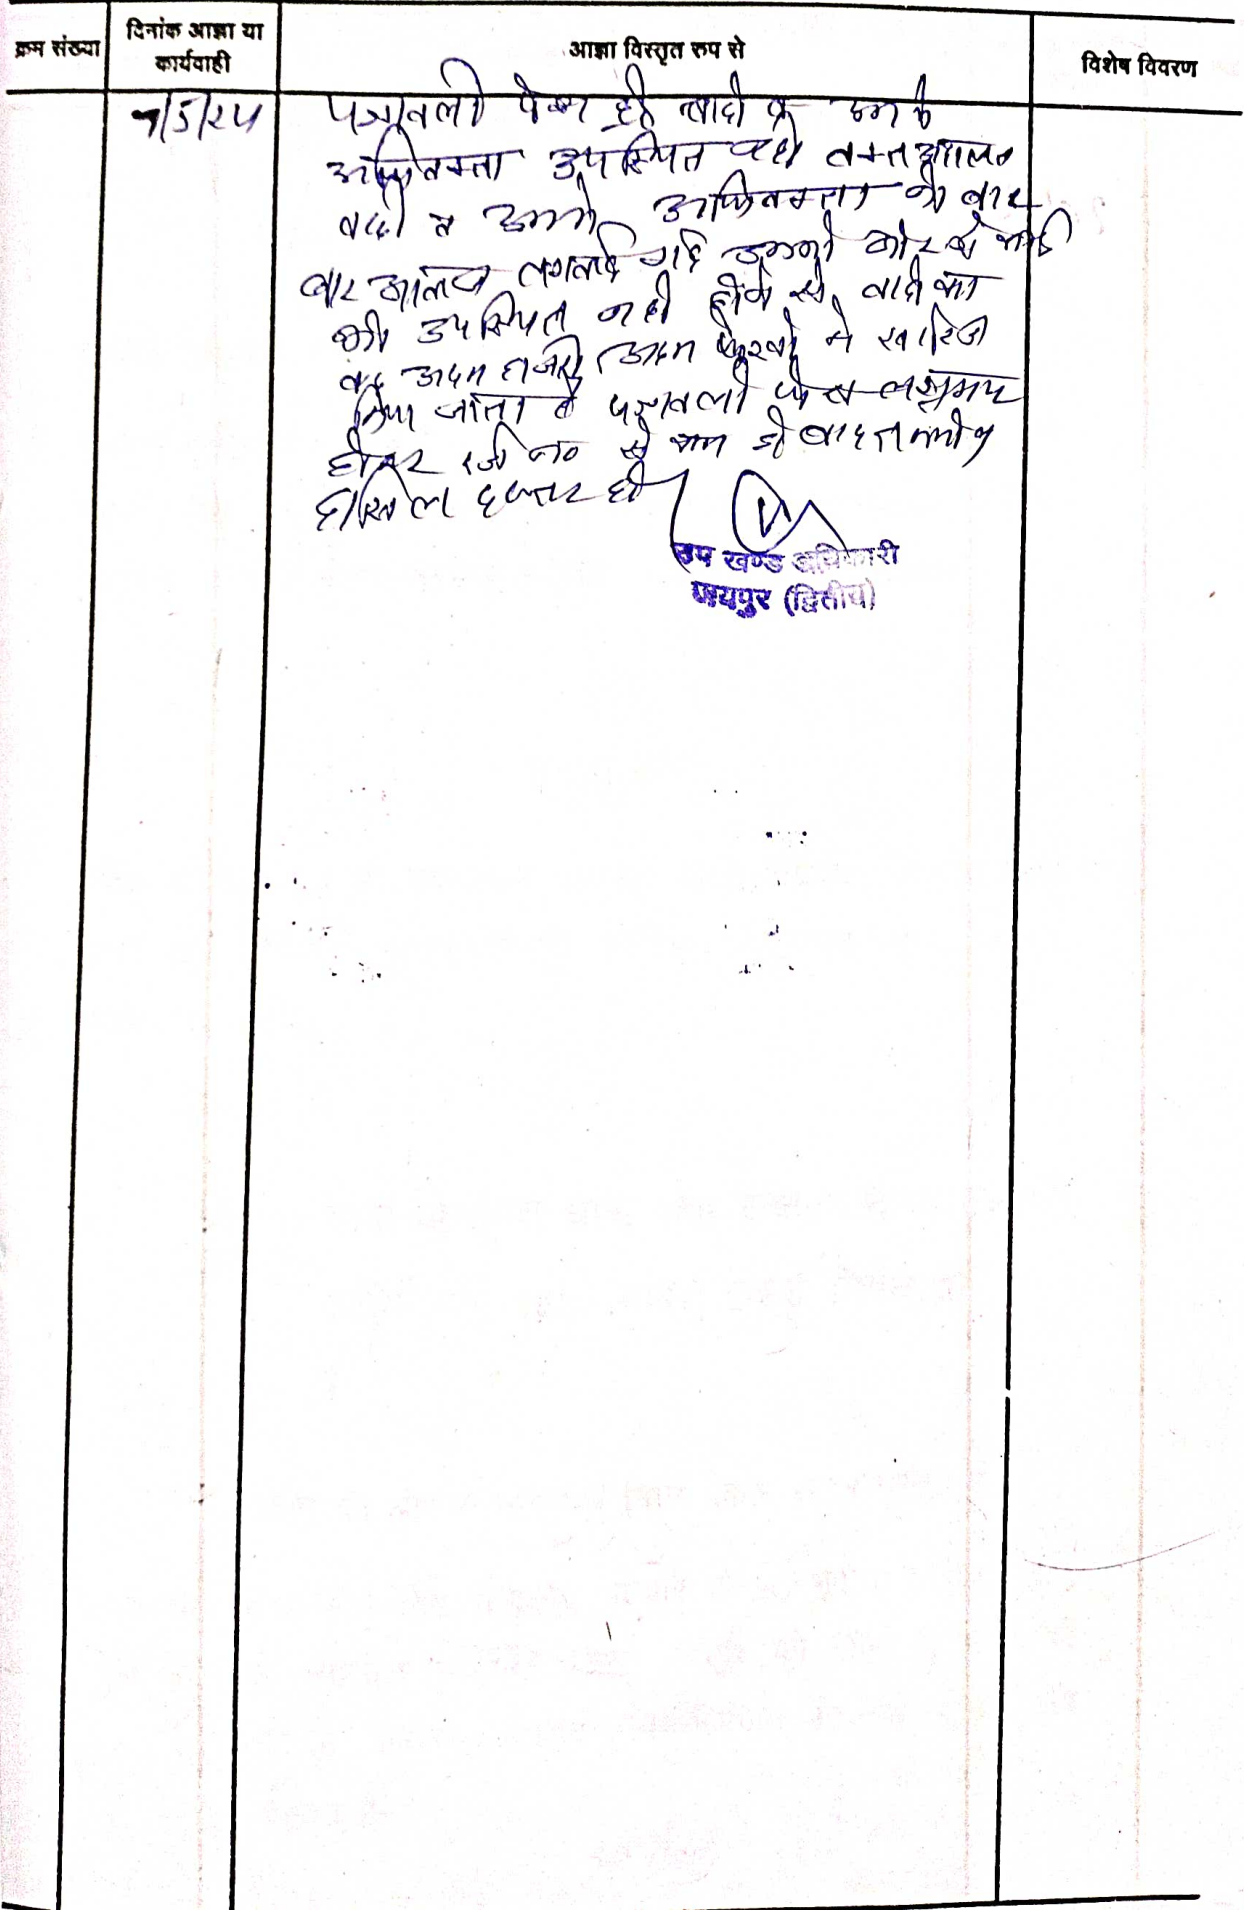 क्रम संख्या
दिनांक आज्ञा या
कार्यवाही
आज्ञा विस्तृत रूप से
विशेष विवरण
पत्रावली पेश हुई वादी व उनके
अभिवक्ता उपस्थित नही वक्त
वादी व उनके अभिवक्ता को बार
बार आवाज लगवाई गई उनकी ओर से कोई
भी उपस्थित नही होने से वादी का
वाद अदम हाजरी अदम पैरवी मे खारिज
किया जाता है पत्रावली फैसल शुमार
होकर नं० से कम हो बाद तकमील
दाखिल दफ्तर हो
उप खण्ड अधिकारी
जयपुर (द्वितीय)